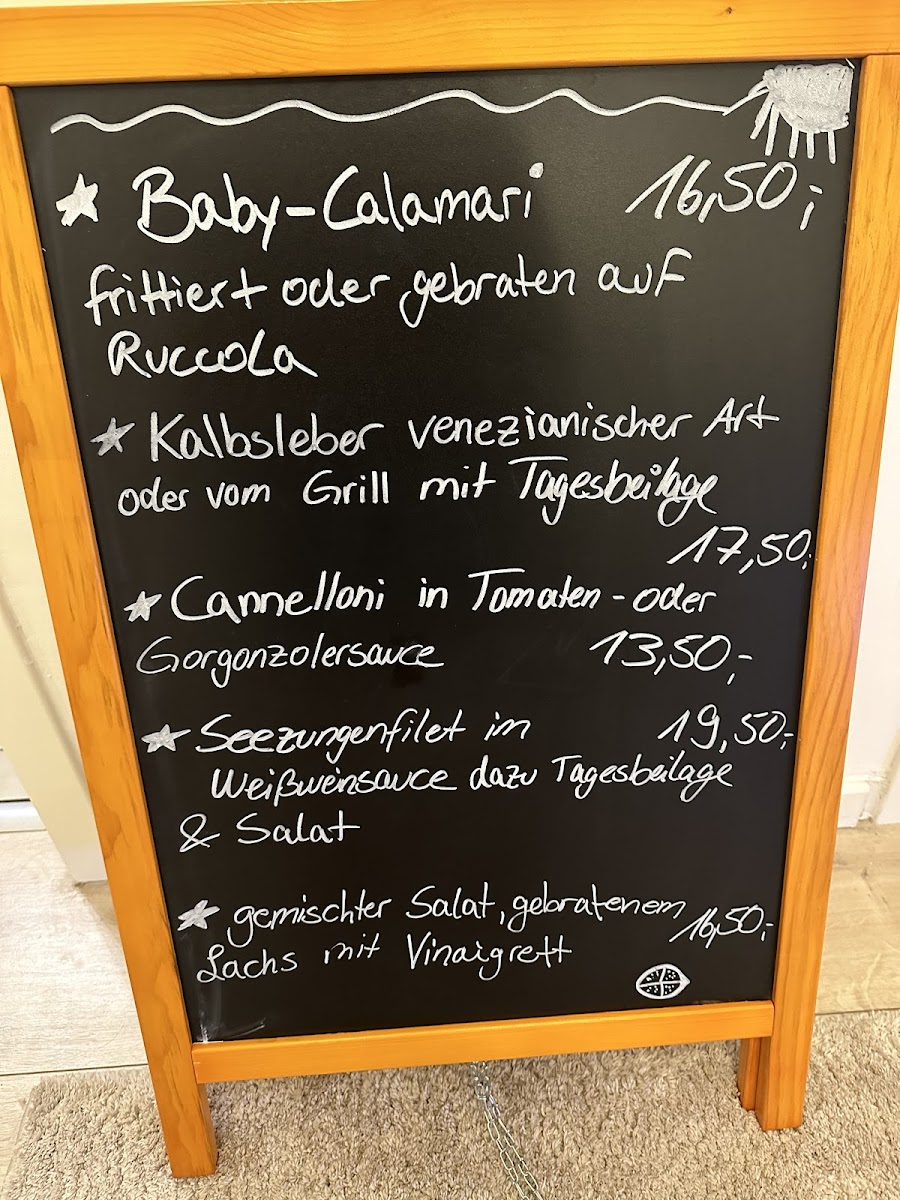 Baby-Calamari 16,50,-
frittiert oder gebraten auf
Ruccola
Kalbsleber venezianischer Art
oder vom Grill mit Tagesbeilage
17,50,-
Cannelloni in Tomaten-oder
Gorgonzolersauce 13,50,-
Seezungenfilet im 19,50,-
Weißweinsauce dazu Tagesbeilage
& Salat
gemischter Salat, gebratenem 16,50,-
Lachs mit Vinaigrett